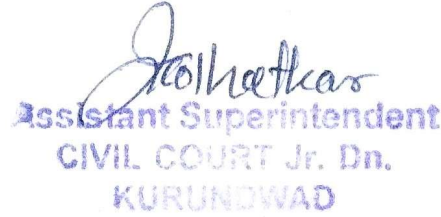 Assistant Superintendent
CIVIL COURT Jr. Dn.
KURUNDWAD